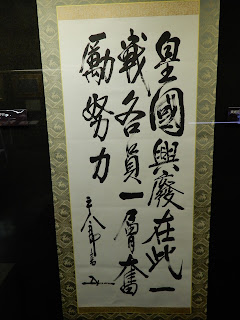 皇國興廢在此一
戰各員一層奮
勵努力